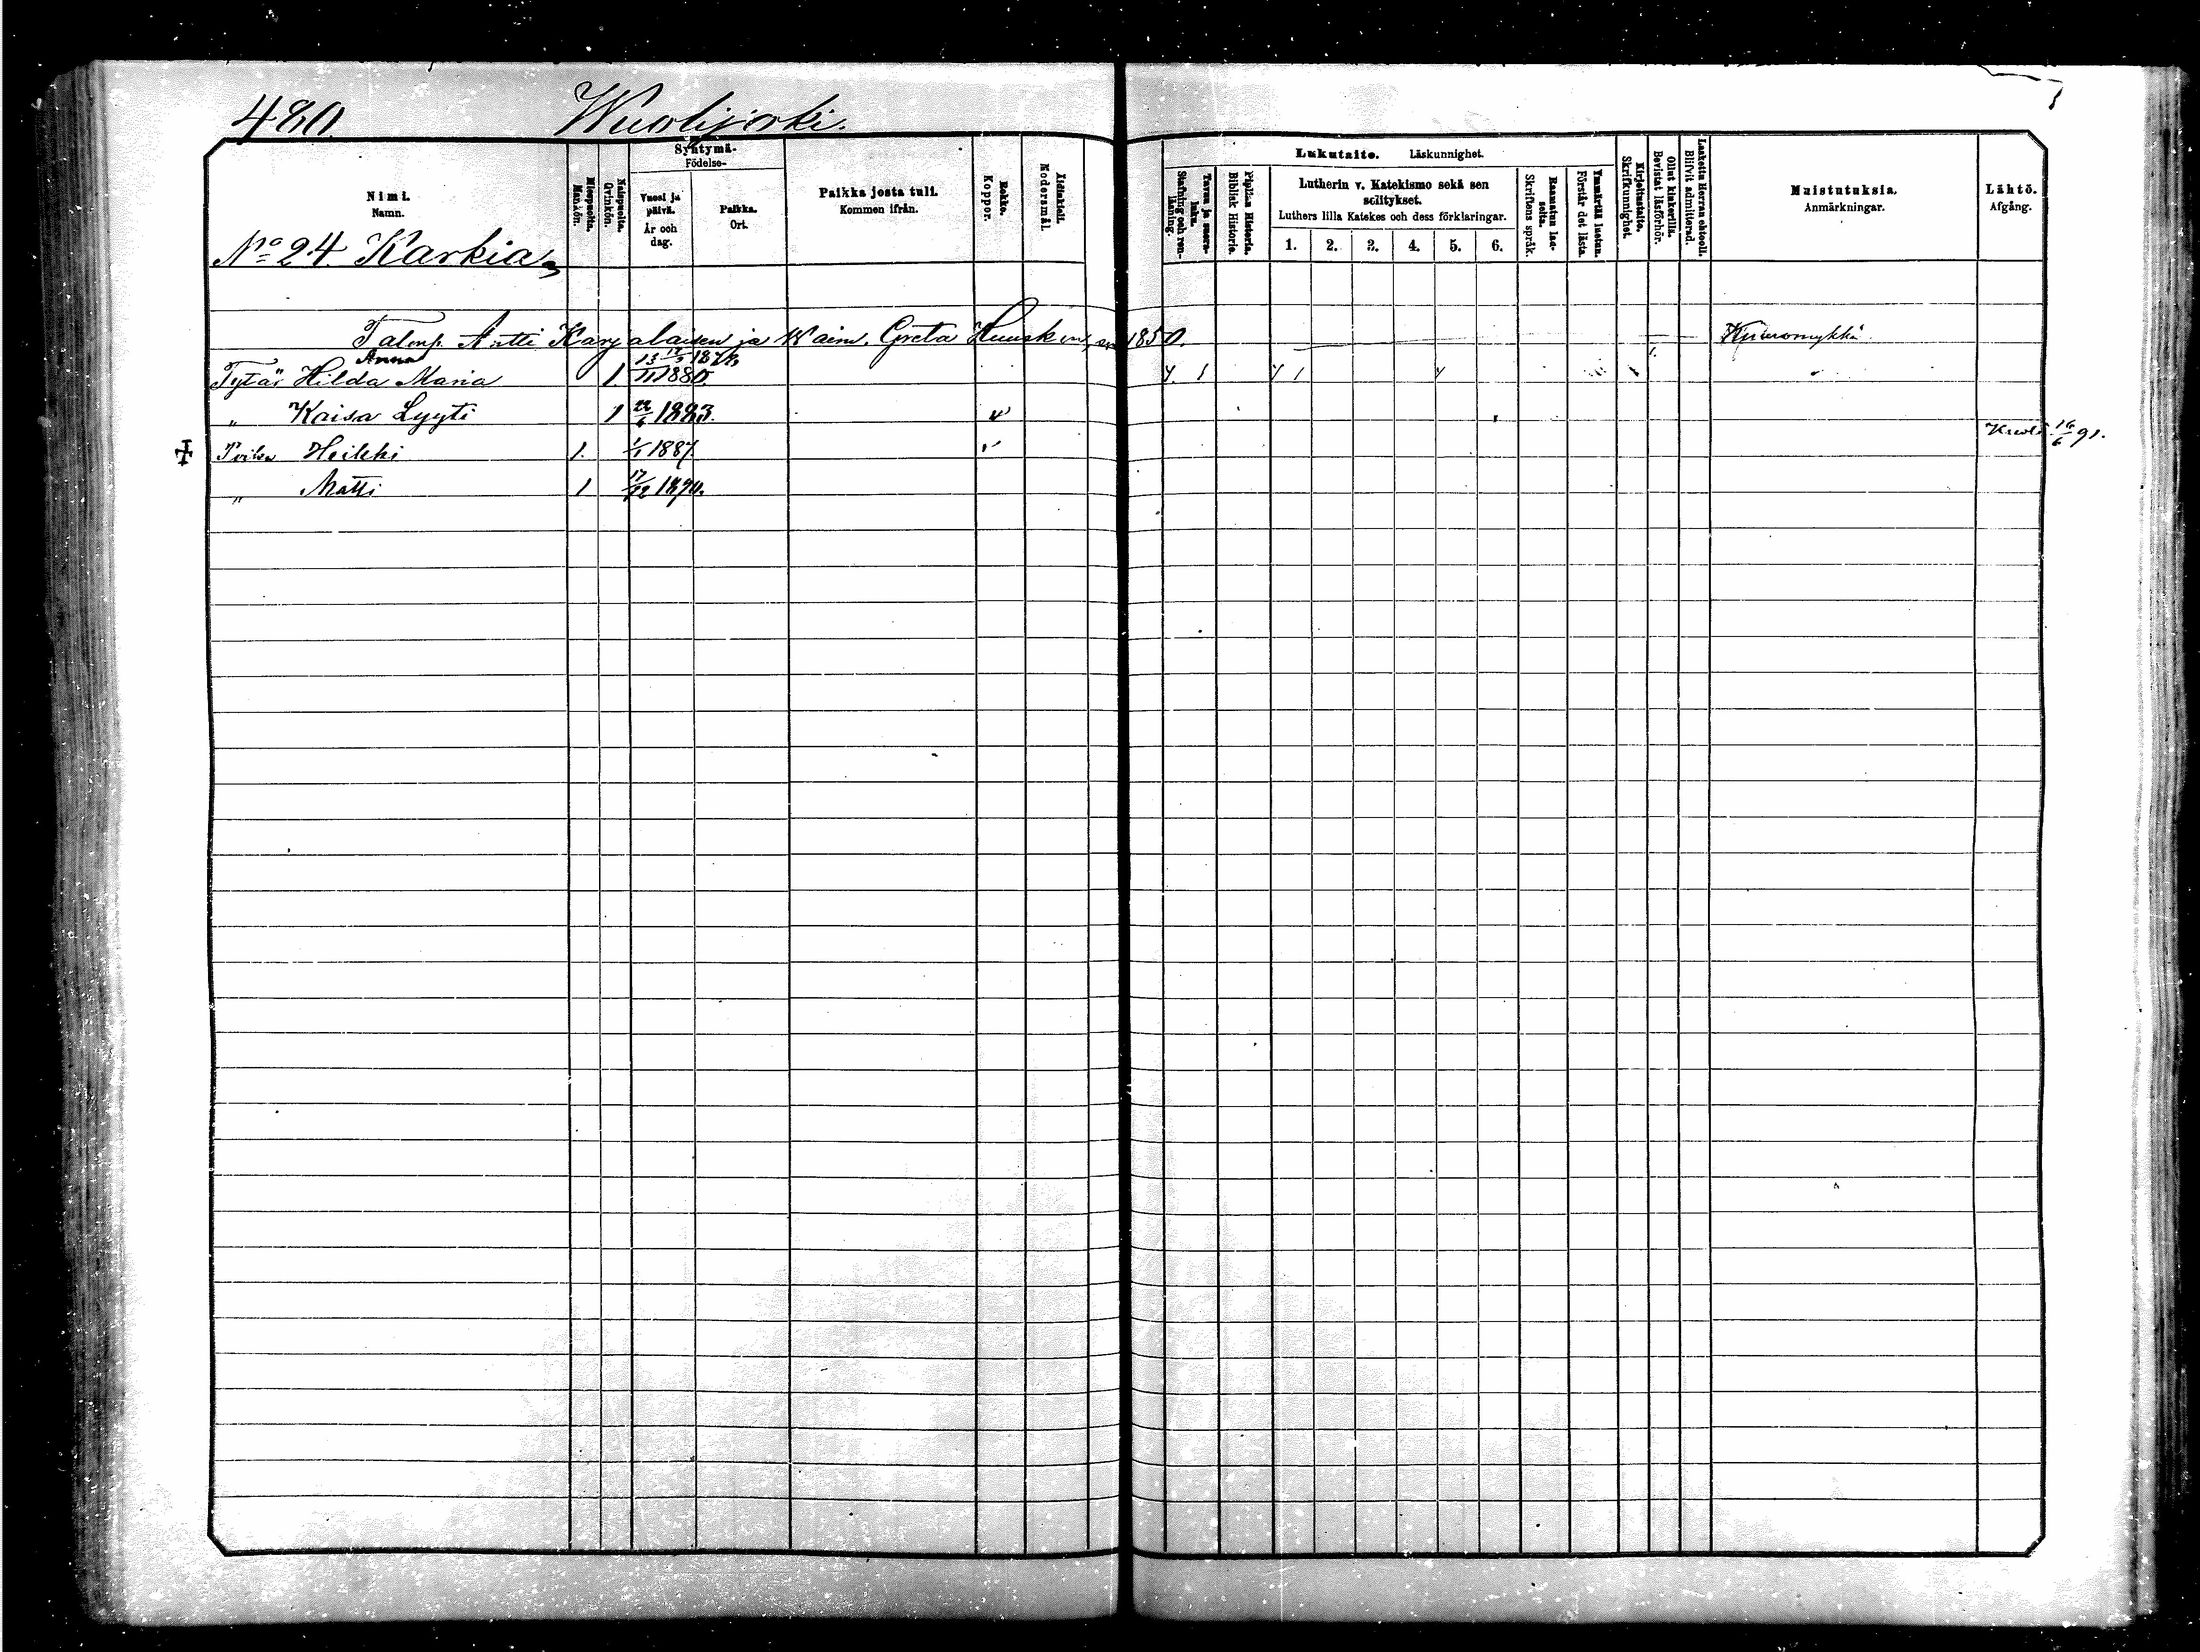 480. Wuolijoki.
Nimi. Namn.
Miespuolia. Mankön.
Naispuolia. Qvinkön.
Syntymä- Födelse-
Vuosi ja päivä. År och dag.
Paikka. Ort.
Paikka josta tuli. Kommen ifrån.
Rokko. Koppor.
Äidinkieli. Modersmål.
Lukutaito. Läskunnighet.
Tavuu ja suora- luku. Stafning och ren- läsning.
Piplian Historia. Biblisk Historie.
Lutherin v. Katekismo sekä sen selitykset.
Luthers lilla Katekes och dess förklaringar.
1. 2. 3. 4. 5. 6.
Raamatun lau- seita. Skriftens språk.
Ymmärtää luetun. Förstår det lästa.
Kirjoitustaito. Skrifkunnighet.
Ollut kinkerillä. Bevistat läsförhör.
Laskettu Herran ehtooll. Blifvit admitterad.
Muistutuksia. Anmärkningar.
Lähtö. Afgång.
No 24. Karkia
Talonp. Antti Karjalaisen ja Waim. Greta 1850. Kuuromykkä.
Anna
Tytär Hilda Maria 1 11 1880. 4 1 4 1 4
" Kaisa Lyyti 1 22/6 1883. v
Poika Heikki 1. 1/1 1887. v Kuoli 16/6 91.
" Matti 1 17/12 1890.